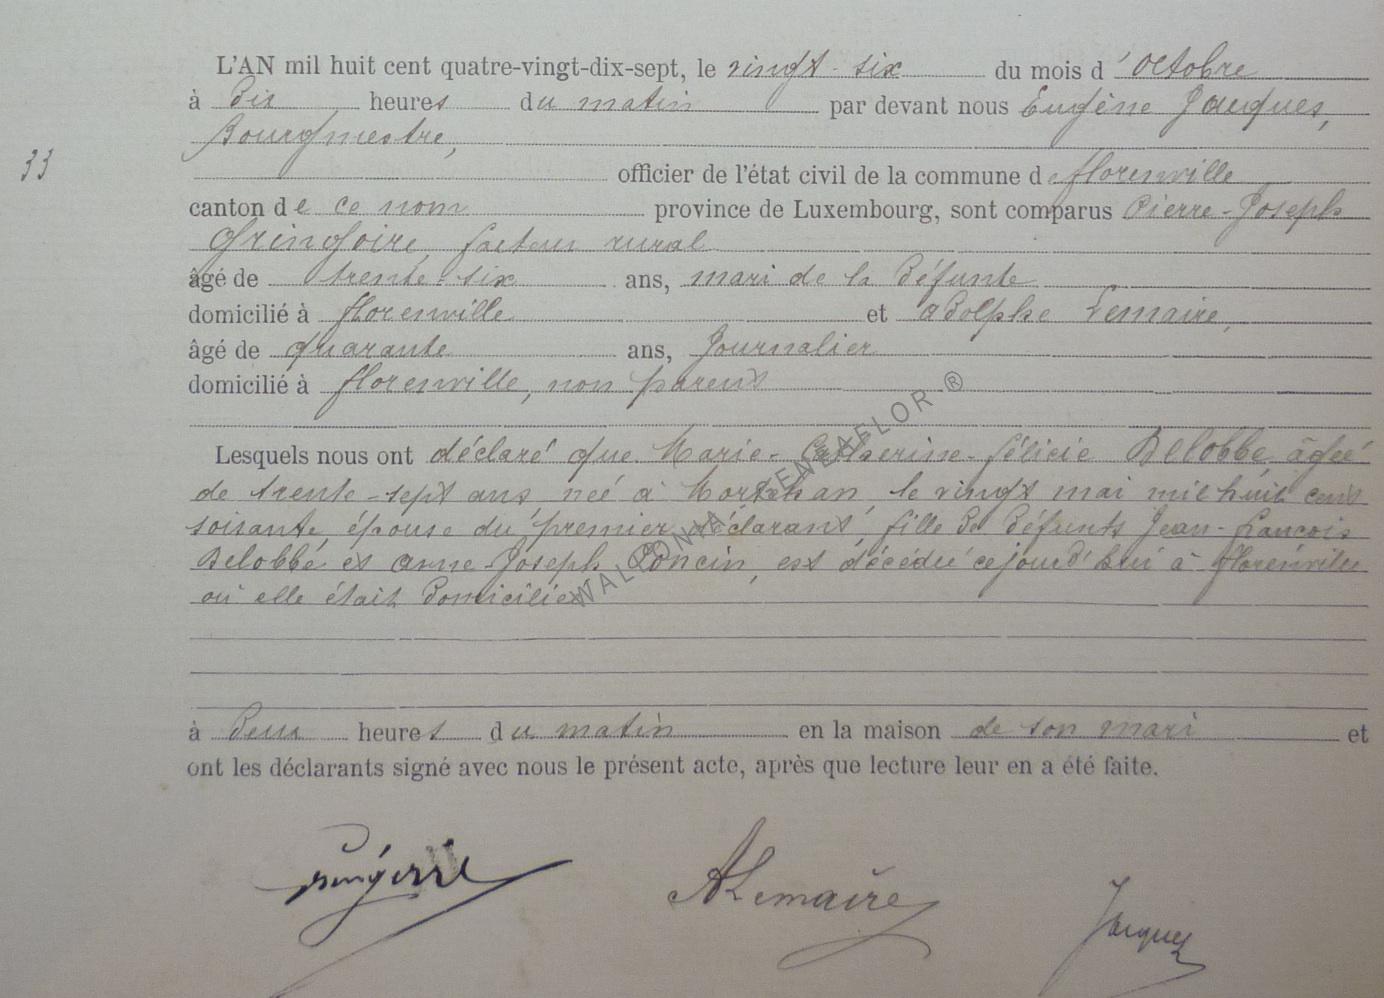 L'AN mil huit cent quatre-vingt-dix-sept, le vingt-six du mois d'Octobre
à Dix heures du matin par devant nous Eugène Jacques,
Bourgmestre,
33
officier de l'état civil de la commune de florenville
canton de ce nom province de Luxembourg, sont comparus Pierre-Joseph
Gringoire, facteur rural
âgé de trente-six ans, mari de la Défunte
domicilié à florenville et adolphe Lemaire,
âgé de quarante ans, Journalier
domicilié à florenville, non parent
Lesquels nous ont déclaré que Marie-Catherine-félicie Delobbe, âgée
de trente-sept ans, née à Mortehan, le vingt mai mil huit cent
soisante, épouse du premier déclarant, fille de Défunts Jean-francois
Delobbe et anne-Joseph Poncin, est décédée ce jourd'hui à florenville
où elle était Domiciliée
à Deux heures du matin en la maison de son mari et
ont les déclarants signé avec nous le présent acte, après que lecture leur en a été faite.
ALemaire
Jacques
WALLONIA GENEAFLOR ®